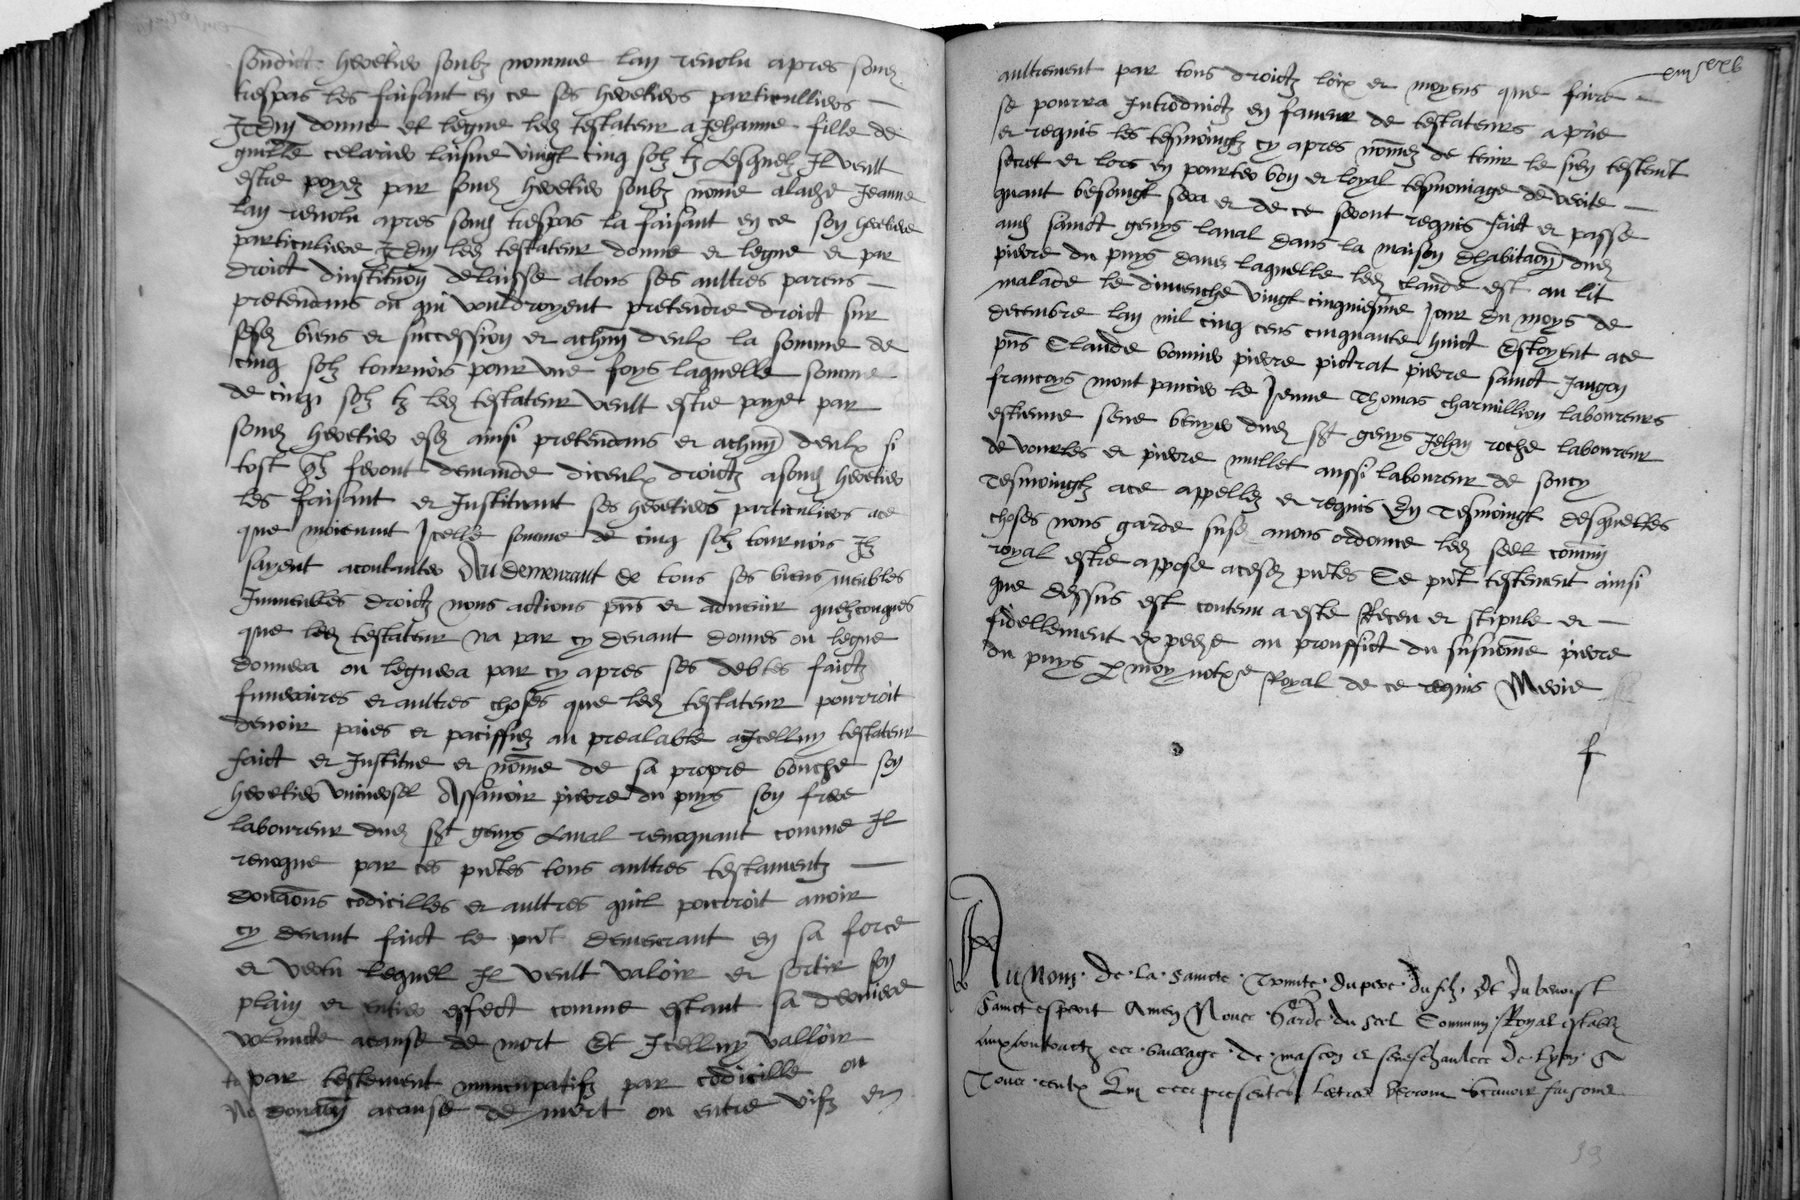 sondict heretier soubz nomme lan revolu apres sond
trespas les faisant en ce ses heretiers particulliers
Item donne et legue led testateur a Jehanne fille de
guille celarier laisne vingt cinq solz tz Lesquelz Il veult
estre payez par sond heretier soubz nome alade Jeanne
lan revolu apres sond trespas la faisant en ce son heretiere
particuliere Item led testateur donne et legue et par
droict dinstitution delaisse a tous ses aultres parens
pretendans ou qui vouldroyent pretendre droict sur
sesd biens et succession et achun deulx la somme de
cinq solz tournois pour une foys laquelle somme
de cinq solz tz led testateur veult estre paye par
sond heretier esd ainsi pretendans et achun deulx si
tost quilz feront demande diceulx droictz asond heretier
les faisant et Instituant ses heretiers particuliers ace
que moienant Icelle somme de cinq solz tournois Ilz
soyent acontantes Au demeurant de tous ses biens meubles
Immeubles droictz noms actions pns et advenir quelzconques
que led testateur na par cy devant donnes ou legue
donnera ou leguera par cy apres ses debtes faictz
funeraires et aultres choses que led testateur pourroit
devoir paies et paciffiez au prealable a Icelluy testateur
faict et Institue et nome de sa propre bouche son
heretier universel Assavoir pierre du puys son frere
laboureur dud sct genys Laval revoquant comme Il
revoque par ces pntes tous aultres testamentz
donaons codicilles et aultres quil pourroit avoir
cy devant faict le pnt demeurant en sa force
et vertu lequel Il veult valoir et sortir son
plain et entier effect comme estant sa derniere
volunte acause de mort Et Icelluy valloir
par testement nuncupatifz par codicille ou
donaon acause de mort ou entre vifz et
aultrement par tous droictz loix et moyens que faire
se pourra Introduictz en faveur de testateurs a prie
et requis les tesmoingtz cy apres nomez de tenir le sien testemt
secret et lors en pourter bon et loyal tesmoniage de verite
quant besoingt sera et de ce seront requis faict et passe
aud sainct genys laval dans la maison dhabitaon dud
pierre du puys dans laquelle led claude est au lit
malade le dimenche vingt cinquiesme Jour du moys de
decembre lan mil cinq cens cinquante huict Estoyent ace
pns Claude bonnier pierre pictrat pierre sainct Jangon
francoys mont pancier le Jeune Thomas charvillion laboureurs
estienne sene benyer dud sct genys Jehan roche laboureur
de vourles et pierre mullet aussi laboureur de soucy
Tesmoingtz ace appellez et requis En Tesmoingt desquelles
choses nous garde suse avons ordonne led seel comun
royal estre appose acesd pntes Ce pnt testement ainsi
que dessus est contenu a este Receu et stipule et
fidellement expedie au prouffict du susnome pierre
du puys p moy notre Royal de ce requis Merie
Au Nom de la saincte Trinite du pere du filz Et du benoist
Sainct esperit Amen Nous Garde du Seel Commun Royal establi
aux contractz es bailliage de mascon et seneschaulcee de Lyon A
Tous ceulx Qui ces presentes Lettres Verront Scavoir faisons